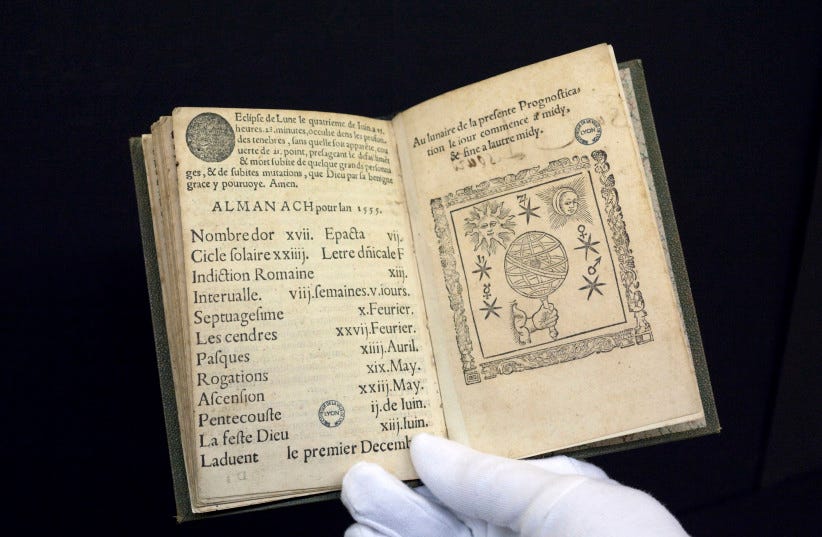 Eclipse de Lune le quatrieme de Iuin a
heures. minutes, occulte dens les profun-
des tenebres, sans quelle soit apparete, cou
uerte de point, presageant le
& mort subite de quelque grands personna
ges, & de subites mutations, que Dieu par sa benigne
grace y pouruoye. Amen.
ALMANACH pour lan 1555.
Nombre dor xvij. Epacta vij.
Cicle solaire xxiiij. Letre dñicale F
Indiction Romaine xiij.
Interualle. viij. semaines. v. iours.
Septuagesime x. Feurier.
Les cendres xxvij. Feurier.
Pasques xiiij. Auril.
Rogations xix. May.
Ascension xxiij. May.
Pentecouste ij. de Iuin.
La feste Dieu xiij. Iuin.
Laduent le premier Decemb
LYON
Au lunaire de la presente Prognostica-
tion le iour commence a midy,
& fine a lautre midy.
LYON